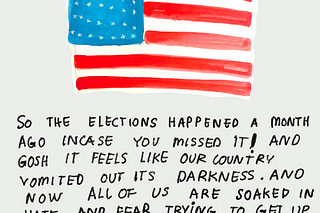 SO THE ELECTIONS HAPPENED A MONTH
AGO INCASE YOU MISSED IT! AND
GOSH IT FEELS LIKE OUR COUNTRY
VOMITED OUT ITS DARKNESS. AND
NOW ALL OF US ARE SOAKED IN
HATE AND FEAR TRYING TO GET UP